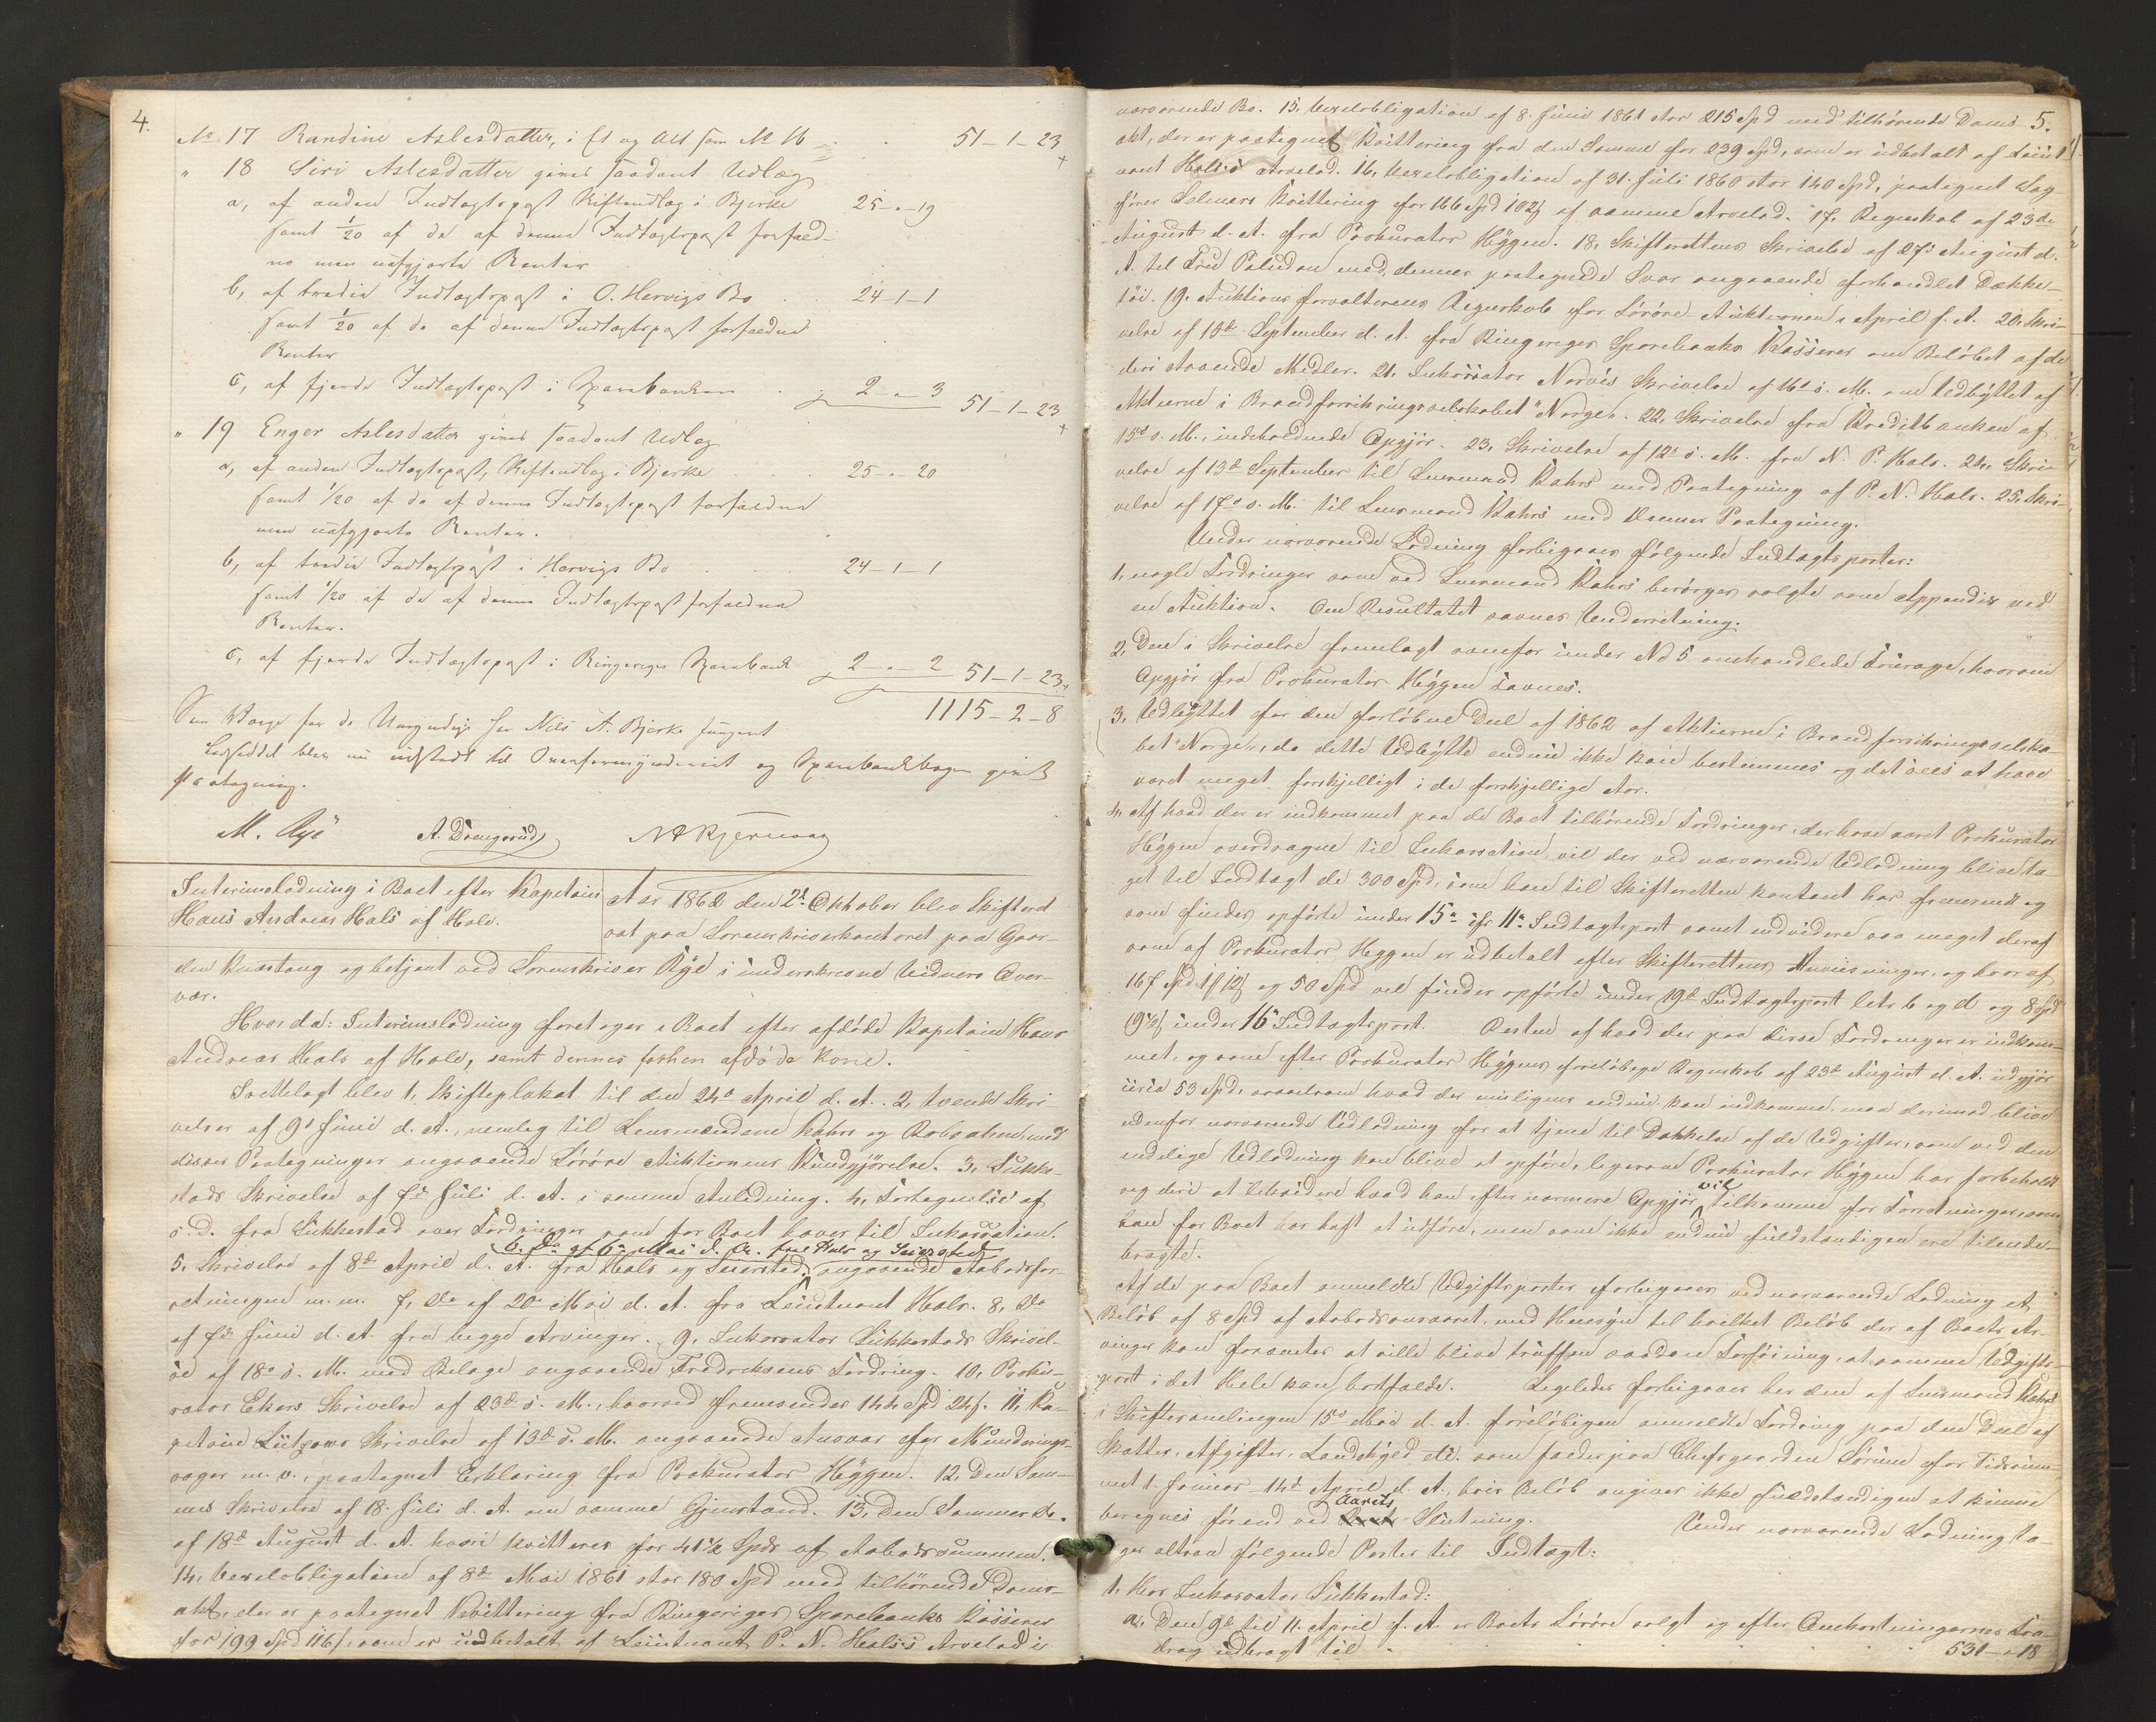 4.
No 17 Randine Aslesdatter, i Et og Alt som No 16 . . 51-1-23
" 18 Siri Aslesdatter gives saadant Udlæg
a, af anden Indtægtspost Skifteudlæg i Bjerke 25-"-19
samt 1/20 af de af denne Indtægtspost forfald-
ne men uafgjorte Renter
b, af tredie Indtægtspost i O. Hervigs Bo . 24-1-1
samt 1/20 af de af denne Indtægtspost forfaldne
Renter
c, af fjerde Indtægtspost i Sparebanken . 2-"-3 51-1-23
" 19 Enger Aslesdatter gives saadant Udlæg
a, af anden Indtægtspost, Skifteudlæg i Bjerke 25-"-20
samt 1/20 af de af denne Indtægtspost forfaldne
men uafgjorte Renter.
b, af tredie Indtægtspost i Hervigs Bo . 24-1-1
samt 1/20 af de af denne Indtægtspost forfaldne
Renter.
c, af fjerde Indtægtspost i Ringeriges Sparebank 2-"-2 51-1-23
1115-2-8
Som Værge for de Umyndige har Nils A. Bjerke fungeret
Lodseddel blev nu udstedt til Overformynderiet og Sparebankbogen givet
Paategning.
M. Rye A. Drengsrud
Interimslodning i Boet efter Kapitain
Hans Andreas Hals af Hole.
Aar 1862 den 2d Oktober blev Skifteret
sat paa Sorenskriverkontoret paa Gaar-
den Knestang og betjent ved Sorenskriver Rye i underskrevne Vidners Over-
vær.
Hvorda: Interimslodning foretoges i Boet efter afdøde Kapitain Hans
Andreas Hals af Hole, samt dennes forhen afdøde Kone.
Fremlagt blev 1, Skifteplakat til den 24de April d. A. 2, tvende Skri
velser af 9d Juni d. A., nemlig til Lensmændene Kahrs og Robsahm, med
disses Paategninger angaaende Løsøre Auktionens Kundgjørelse. 3, Sukke-
stads Skrivelse af 7de Juli d. A. i samme Anledning. 4, Fortegnelse af
s. D. fra Sukkestad over Fordringer som for Boet haves til Inkassation.
6. Do af 6te Mai d. A. fra Hals og Seierstedt
5, Skrivelse af 8de April d. A. fra Hals og Seiersted, angaaende Aabodsfor-
retningen m. m. 7, Do af 20de Mai d. A. fra Lieutnant Hals. 8, Do
af 7de Juni d. A. fra begge Arvinger. 9, Inkassator Sukkestads Skrivel-
se af 18de s. M. med Bilage angaaende Fredriksens Fordring. 10, Proku-
rator Ekers Skrivelse af 23de s. M., hvorved fremsendes 144 Spd 24 s. 11, Ka-
pitain Lützows Skrivelse af 13de s. M. angaaende Ansvar for Munderings-
sager m. v., paategnet Erklæring fra Prokurator Høygen. 12, Den Sam-
mes Skrivelse af 18 Juli d. A. om samme Gjenstand. 13, Den Sammes Do.
af 18de August d. A. hvori kvitteres for 41 1/2 Spd af Aabodssummen.
14, Vexelobligation af 8de Mai 1861 stor 180 Spd med tilhørende Doms-
akt, der er paategnet Kvittering fra Ringeriges Sparebanks Kasserer
for 199 Spd 116 s, som er udbetalt af Lieutnant P. N. Hals's Arvelod i
5.
nærværende Bo. 15, Vexelobligation af 8 Juni 1861 stor 215 Spd med tilhørende Doms-
akt, der er paategnet Kvittering fra den Samme for 239 Spd, som er udbetalt af Lieut
nant Hals's Arvelod. 16, Vexelobligation af 31 Juli 1860 stor 140 Spd, paategnet Sag-
fører Selmers Kvittering for 166 Spd 102 s af samme Arvelod. 17, Regnskab af 23de
August d. A. fra Prokurator Høygen. 18, Skifterettens Skrivelse af 27d August d.
A. til Fru Paludan med dennes paategnede Svar angaaende forhandlet Dække-
tøi. 19, Auktionsforvalterens Regnskab for Løsøre-Auktionen i April f. A. 20, Skri-
velse af 18de September d. A. fra Ringeriges Sparebanks Kasserer om Beløbet af de
deri staaende Midler. 21, Inkassator Nervés Skrivelse af 16d s. M. om Udbyttet af
Aktierne i Brandforsikringsselskabet "Norge". 22, Skrivelse fra Kreditbanken af
15d s. M., indeholdende Opgjør. 23, Skrivelse af 12d s. M. fra N. P. Hals. 24, Skri-
velse af 13d September til Lensmand Kahrs med Paategning af P. N. Hals. 25, Skri-
velse af 17de s. M. til Lensmand Kahrs med dennes Paategning.
Under nærværende Lodning forbigaaes følgende Indtægtsposter:
1, nogle Fordringer som ved Lensmand Kahrs besørges solgte som Appendix ved
en Auktion. Om Resultatet savnes Underretning.
2, Den i Skrivelse fremlagt ovenfor under No 5 omhandlede Fourage, hvorom
Opgjør fra Prokurator Høygen savnes.
3, Udbyttet for den forløbne Deel af 1862 af Aktierne i Brandforsikringsselska-
bet "Norge", da dette Udbytte endnu ikke kan bestemmes og det sees at have
været meget forskjelligt i de forskjellige Aar.
4, Af hvad der er indkommet paa de Boet tilhørende Fordringer, der have været Prokurator
Høygen overdragne til Inkassation, vil der ved nærværende Udlodning blive ta
get til Indtægt de 300 Spd, som han til Skifteretten kontant har fremsendt og
som findes opførte under 15de ifr 11te Indtægtspost samt endvidere saa meget deraf
som af Prokurator Høygen er udbetalt efter Skifterettens Anviisninger, og hvoraf
167 Spd 1 s 12 s og 50 Spd vil findes opførte under 19de Indtægtspost litr. b og d og 8 Spd
19 1/2 s under 16de Indtægtspost. Resten af hvad der paa disse Fordringer er indkom-
met, og som efter Prokurator Høygens foreløbige Regnskab af 23de August d. A. udgjør
circa 53 Spd, saavelsom hvad der muligens endnu kan indkomme, maa derimod blive
udenfor nærværende Udlodning for at tjene til Dækkelse af de Udgifter, som ved den
endelige Udlodning kan blive at opføre, ligesom Prokurator Høygen har forbeholdt
vil
sig deri at likvidere hvad han efter nærmere Opgjør tilkomme for Forretninger, som
han for Boet har havt at udføre, men som ikke endnu fuldstændigen ere tilende-
bragte.
Af de paa Boet anmeldte Udgiftsposter forbigaaes ved nærværende Lodning et
Beløb af 8 Spd af Aabodsansvaret, med Hensyn til hvilket Beløb der af Boets Ar-
vinger kan forventes at ville blive truffen saadan Forføining, at samme Udgifts-
post i det Hele kan bortfalde. Ligeledes forbigaaes her den af Lensmand Kahrs
i Skiftesamlingen 15de Mai d. A. foreløbigen anmeldte Fordring paa den Deel af
Skatter, Afgifter, Landskyld etc. som falder paa Chefsgaarden Sørum for Tidsrum-
met 1 Januar-14de April d. A., hvis Beløb angives ikke fuldstændigen at kunne
Aarets
beregnes førend ved Slutning. Under nærværende Lodning ta-
ges altsaa følgende Poster til Indtægt:
1, Hos Inkassator Sukkestad:
a, Den 9de til 11 April f. A. er Boets Løsøre solgt og efter Omkostningernes Fra-
drag udbragt til . . . 531-"-18